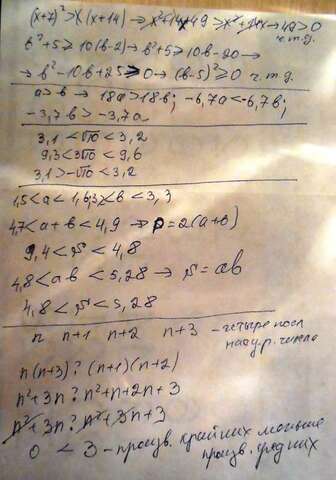 (x+7)²>x(x+14) → x²+14x+49>x²+14x → 49>0
ч.т.д.
b²+5≥10(b-2) → b²+5≥10b-20 →
→ b²-10b+25≥0 → (b-5)²≥0 ч.т.д.
a>b → 18a>18b; -6,7a<-6,7b;
-3,7b>-3,7a
3,1<√10<3,2
9,3<3√10<9,6
3,1>-√10<3,2
1,5<a<1,6; 3,2<b<3,3
4,7<a+b<4,9 → P=2(a+b)
9,4<P<4,8
4,8<ab<5,28 → S=ab
4,8<S<5,28
n n+1 n+2 n+3 - четыре посл
натур. числа
n(n+3) ? (n+1)(n+2)
n²+3n ? n²+n+2n+3
n²+3n ? n²+3n+3
0 < 3 - произв. крайних меньше
произв. средних